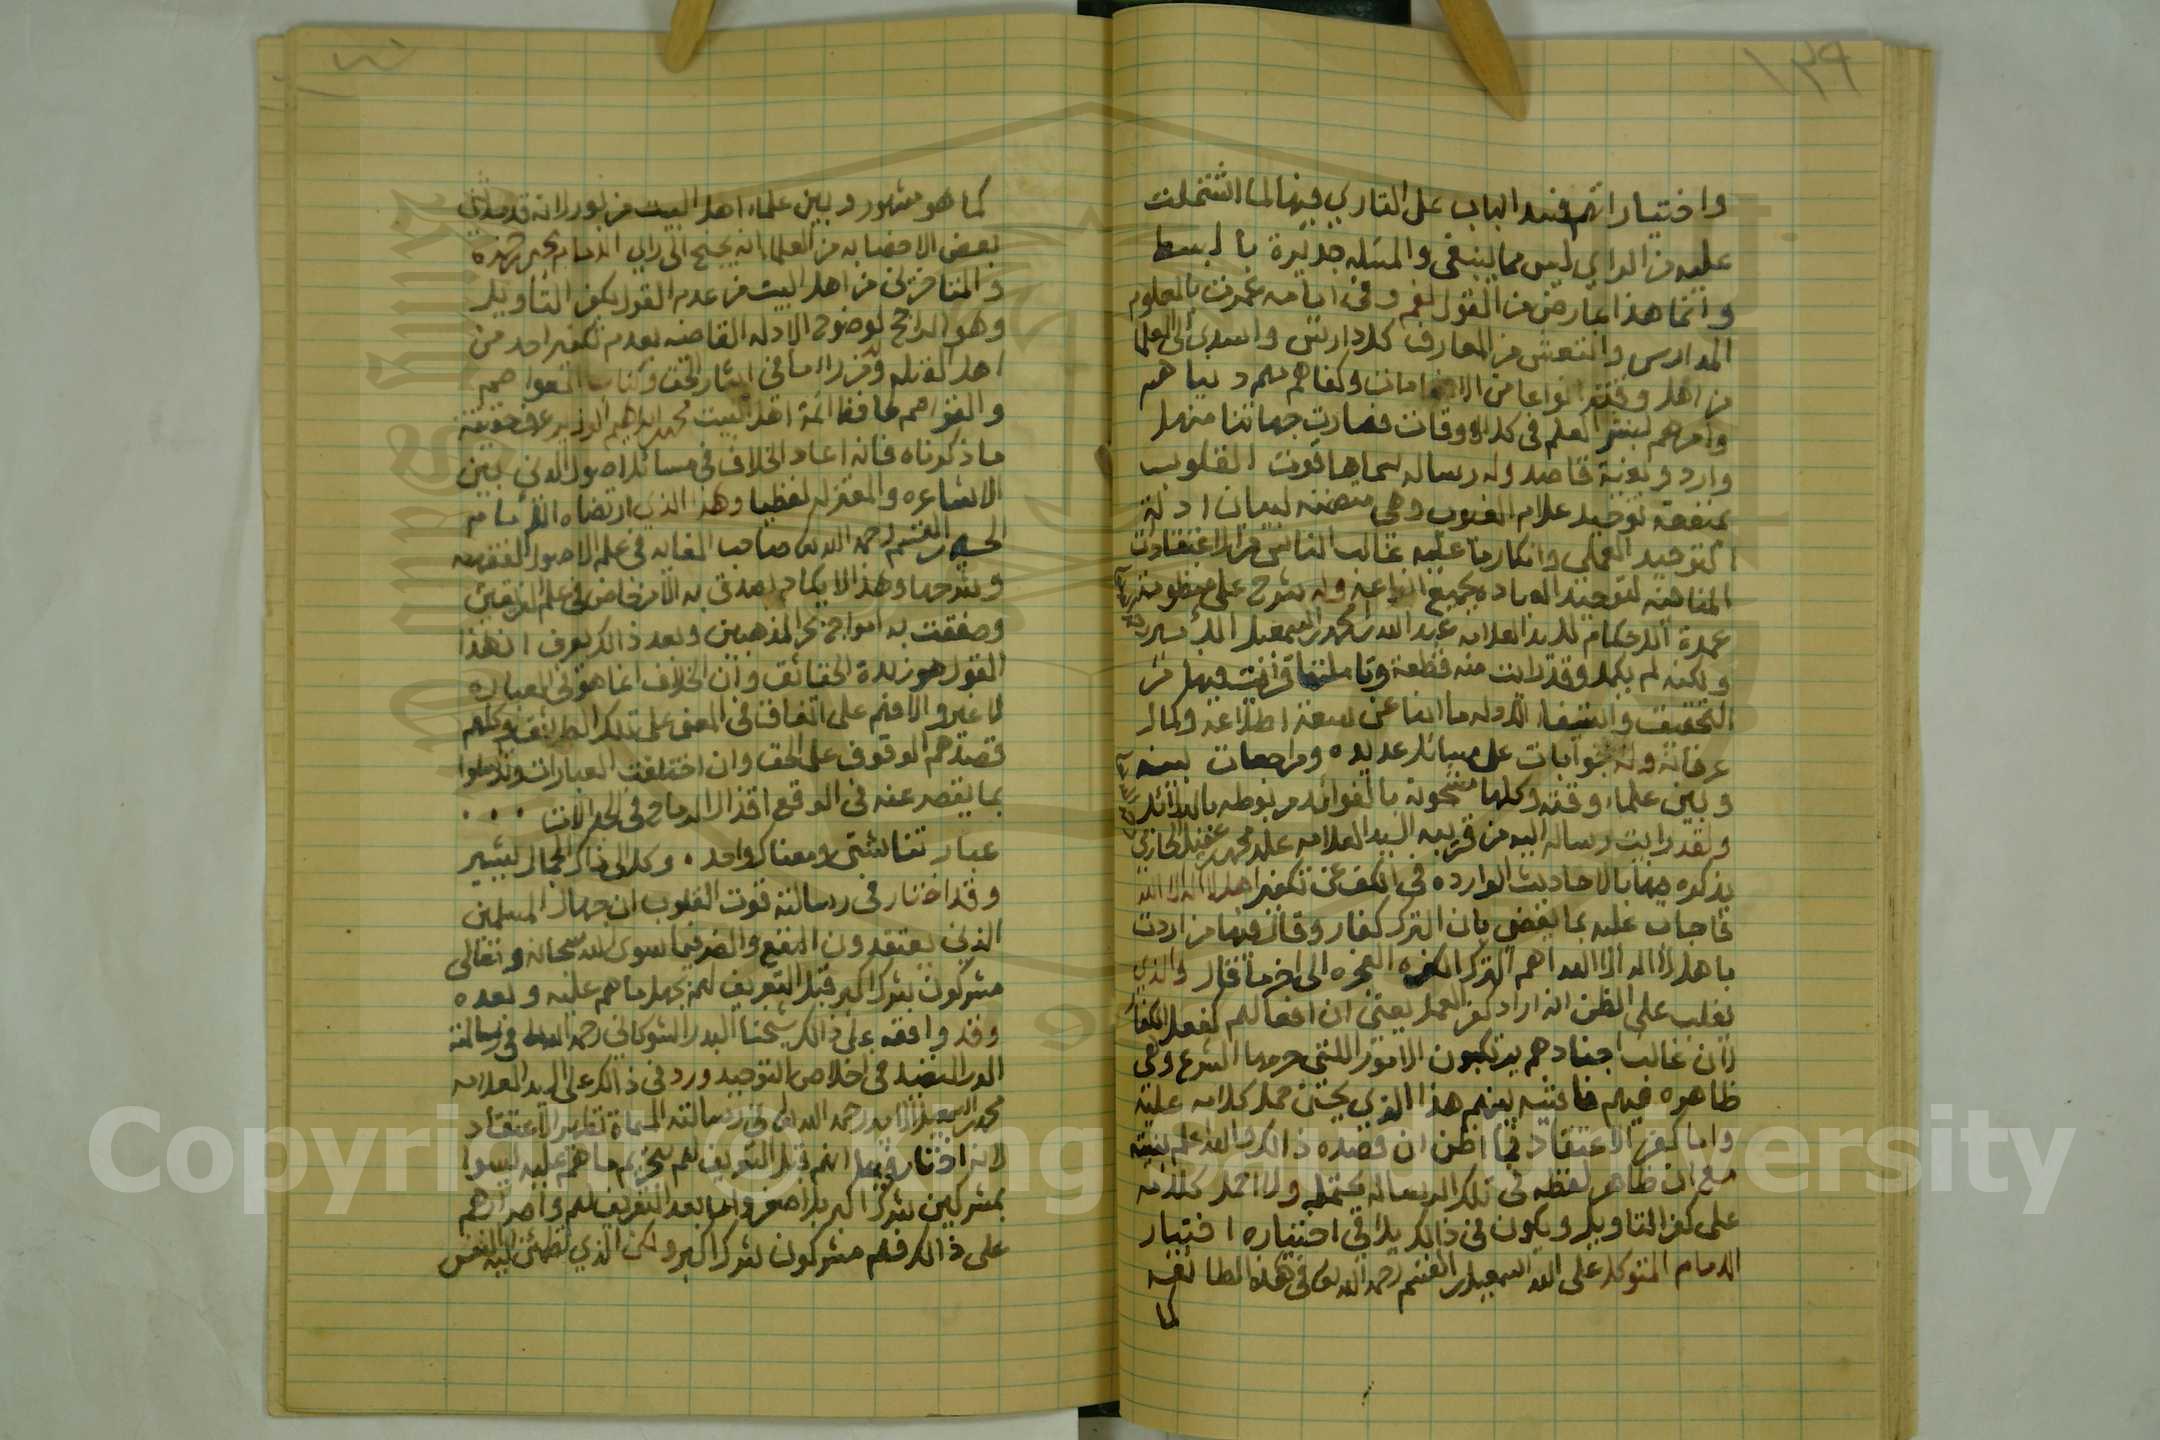 ١٢٩
واختياراتهم فسد الباب على القاري فيها لما اشتملت
عليه من الراي ليس مما ينبغي والمسئله جديرة بالبسط
وانما هذا عارض من القول نعم وفي ايامه عمرت بالعلوم
المدارس وانتعش من المعارف كل دارس واسدى الى العلما
من اهل وقته انواعا من الانعامات وكفاهم مهم دنياهم
وامرهم بنشر العلم في كل الاوقات فصارت جهاتنا منهل
وارد وبغية قاصد وله رساله سماها قوت القلوب
بمنفعة توحيد علام الغيوب وهي متضمنه لبيان ادلة
التوحيد العملي وانكار ما عليه غالب الناس من الاعتقادات
المنافية لتوحيد العباده بجميع انواعه وله شرح على منظومة
عمدة الاحكام للسيد العلامه عبد الله بن محمد بن اسمعيل الامير
ولكنه لم يكمل وقد رايت منه قطعة وتاملتها فرايت فيها من
التحقيق واستيفاء الادله ما انبا عن سعة اطلاعه وكمال
عرفانه وله جوابات على مسائل عديده ومراجعات بينه
وبين علماء وقته وكلها مشحونة بالفوائد مربوطه بالدلائل
ولقد رايت رساله اليه من قريبه السيد العلامه علي بن محمد بن عقيل الحازمي
يذكره فيها بالاحاديث الوارده في الكف عن تكفير اهل لا اله الا الله
فاجاب عليه بما يقضي بان الترك كفار وقال فيها من اردت
باهل لا اله الا الله اهم الترك الكفره الفجره الى اخر ما قال والذي
يغلب على الظن انه اراد كفر العمل يعني ان افعالهم كفعل الكفار
لان غالب اجنادهم يرتكبون الامور اللتي حرمها الشرع وهي
ظاهره فيهم فاشيه بينهم هذا الذي يحسن حمل كلامه عليه
واما كفر الاعتقاد فما اظن ان قصده ذالك والله اعلم بنيته
مع ان ظاهر لفظه في تلك الرساله يحتمله ولا احمل كلامه
على كفر التاويل ويكون في ذالك بل في اختياره اختيار
الامام المتوكل على الله اسمعيل بن القسم رحمه الله في هذه الطائفه
كما
كما هو مشهور وبين علماء اهل البيت مزبور لانه قد
بعض الاخصا به من العلما انه يجنح الى راي الامام يحيى بن حمزه
والمتاخرين من اهل البيت من عدم القول بكفر التاويل
وهو الراجح لوضوح الادله القاضيه بعدم تكفير احد من
اهل القبله ومن راء ما في ايثار الحق وكتاب العواصم
والقواصم لحافظ ائمة اهل البيت محمد بن ابراهيم الوزير عرف حقيقة
ما ذكرناه فانه اعاد الخلاف في مسائل اصول الدين بين
الاشاعره والمعتزله لفظيا وهذا الذي ارتضاه الامام
الحسين بن القسم رحمه الله صاحب الغايه في علم الاصول الفقهيه
وشرحها وهذا لا يكاد يصدق به الا من خاض في علم الفريقين
وصفقت به امواج بحر المذهبين وبعد ذالك يعرف ان هذا
القول هو زبدة الحقائق وان الخلاف انما هو في العباره
لا غير والا فهم على اتفاق في المعنى على تلك الطرائق وكلهم
قصدهم الوقوف على الحق وان اختلفت العبارات وتراموا
بما يقصر عنه في الوقع اقذال الرماح في الحرالات
عباراتنا شتى ومعناك واحد . وكل الى ذاك الجمال يشير
وقد اختار في رسالته قوت القلوب ان جهال المسلمين
الذين يعتقدون النفع والضر فيما سوى الله سبحانه وتعالى
مشركون شركا اكبر قبل التعريف لهم بجهل ما هم عليه وبعده
وقد وافقه على ذالك شيخنا البدر الشوكاني رحمه الله في رسالته
الدر النضيد في اخلاص التوحيد ورد في ذالك على السيد العلامه
محمد بن اسمعيل الامير رحمه الله في رسالته المسماة تطهير الاعتقاد
لانه اختار فيها انهم قبل التعريف لهم بتحريم ما هم عليه ليسوا
بمشركين شركا اكبر بل اصغر واما بعد التعريف لهم واصرارهم
على ذالك فهم مشركون شركا اكبر ولكن الذي تطمئن اليه النفس